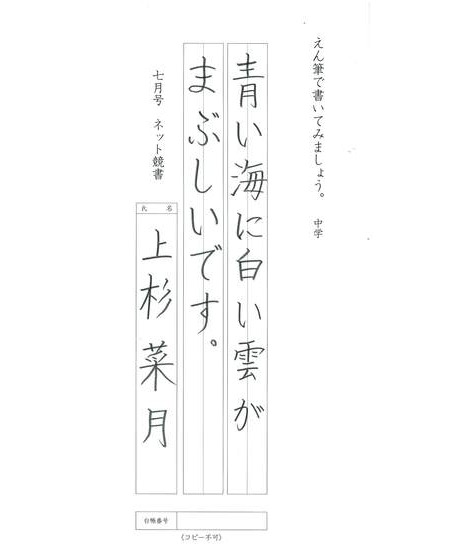 えん筆で書いてみましょう。 中学
青い海に白い雲が
まぶしいです。
七月号 ネット競書
氏名
上杉菜月
台帳番号
(コピー不可)